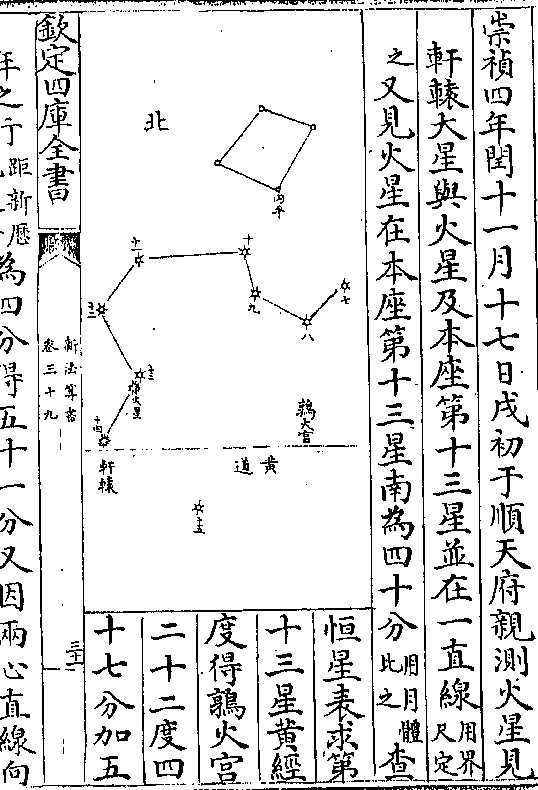 崇禎四年閏十一月十七日戌初于順天府親測火星見
軒轅大星與火星及本座第十三星並在一直線用界尺定
之又見火星在本座第十三星南為四十分用月體比之查
恒星表求第
十三星黃經
度得鶉火宮
二十二度四
十七分加五
北
丙午
七
八
九
十
十一
十二
十三
火星
十四
軒轅
黃道
鶉火宮
十五
欽定四庫全書
新法算書
卷三十九
三十
距新歷為四分得五十一分又因兩心直線向